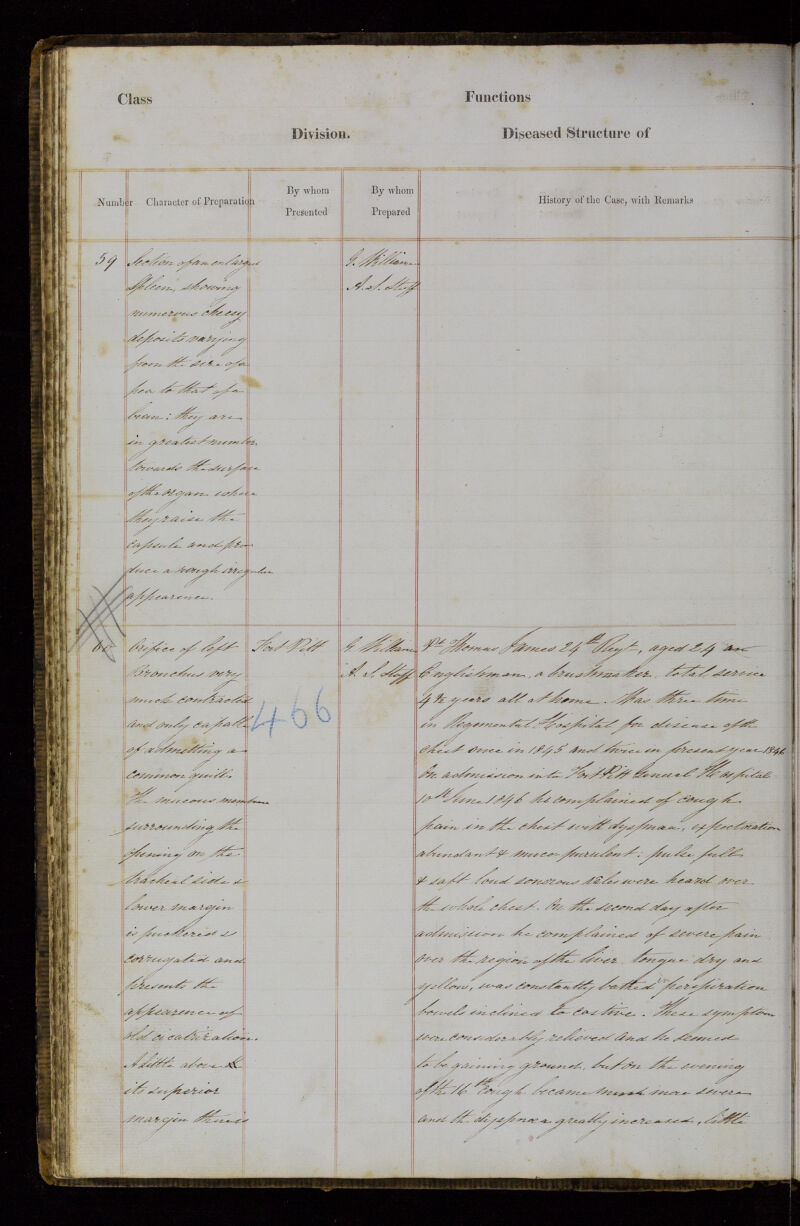 Class
Functions
Division.
Diseased Structure of
Number
Character of Preparation
By whom
Presented
By whom
Prepared
History of the Case, with Remarks
59
Section of an enlarged
Spleen, showing
numerous cheesy
deposits varying
from the size of a
pea to that of a
bean: they are
in greatest number
towards the surface
of the organ where
they raise the
capsule and pro
duce a rough irregular
appearance.
G. William
A. S. Staff
60
Orifice of left
Bronchus very
much contracted
and only capable
of admitting a
common quill.
The mucous membrane
surrounding the
opening on the
tracheal side &
lower margin
is puckered &
corrugated and
presents the
appearance of
old cicatrization.
A little above
its superior
margin there is
Fort Pitt
466
G William
A. S. Staff
Pt Thomas James 24th Regt, aged 24 an
Englishman, a brushmaker, total service
4 8/12 years all at home. Was three times
in Regimental Hospital for disease of the
chest once in 1845 and twice in present year 1846
On admission into Fort Pitt General Hospital
10th June 1846 he complained of cough
pain in the chest with dyspnœa, expectoration
abundant & muco purulent: pulse full
& soft loud sonorous râles were heard over
the whole chest. On the second day after
admission he complained of severe pain
over the region of the liver tongue dry and
yellow, was constantly bathed in perspiration
bowels inclined to costive. These symptoms
were considerably relieved and he seemed
to be gaining ground, but on the evening
of the 16th cough became much more severe
and the dyspnœa greatly increased, little